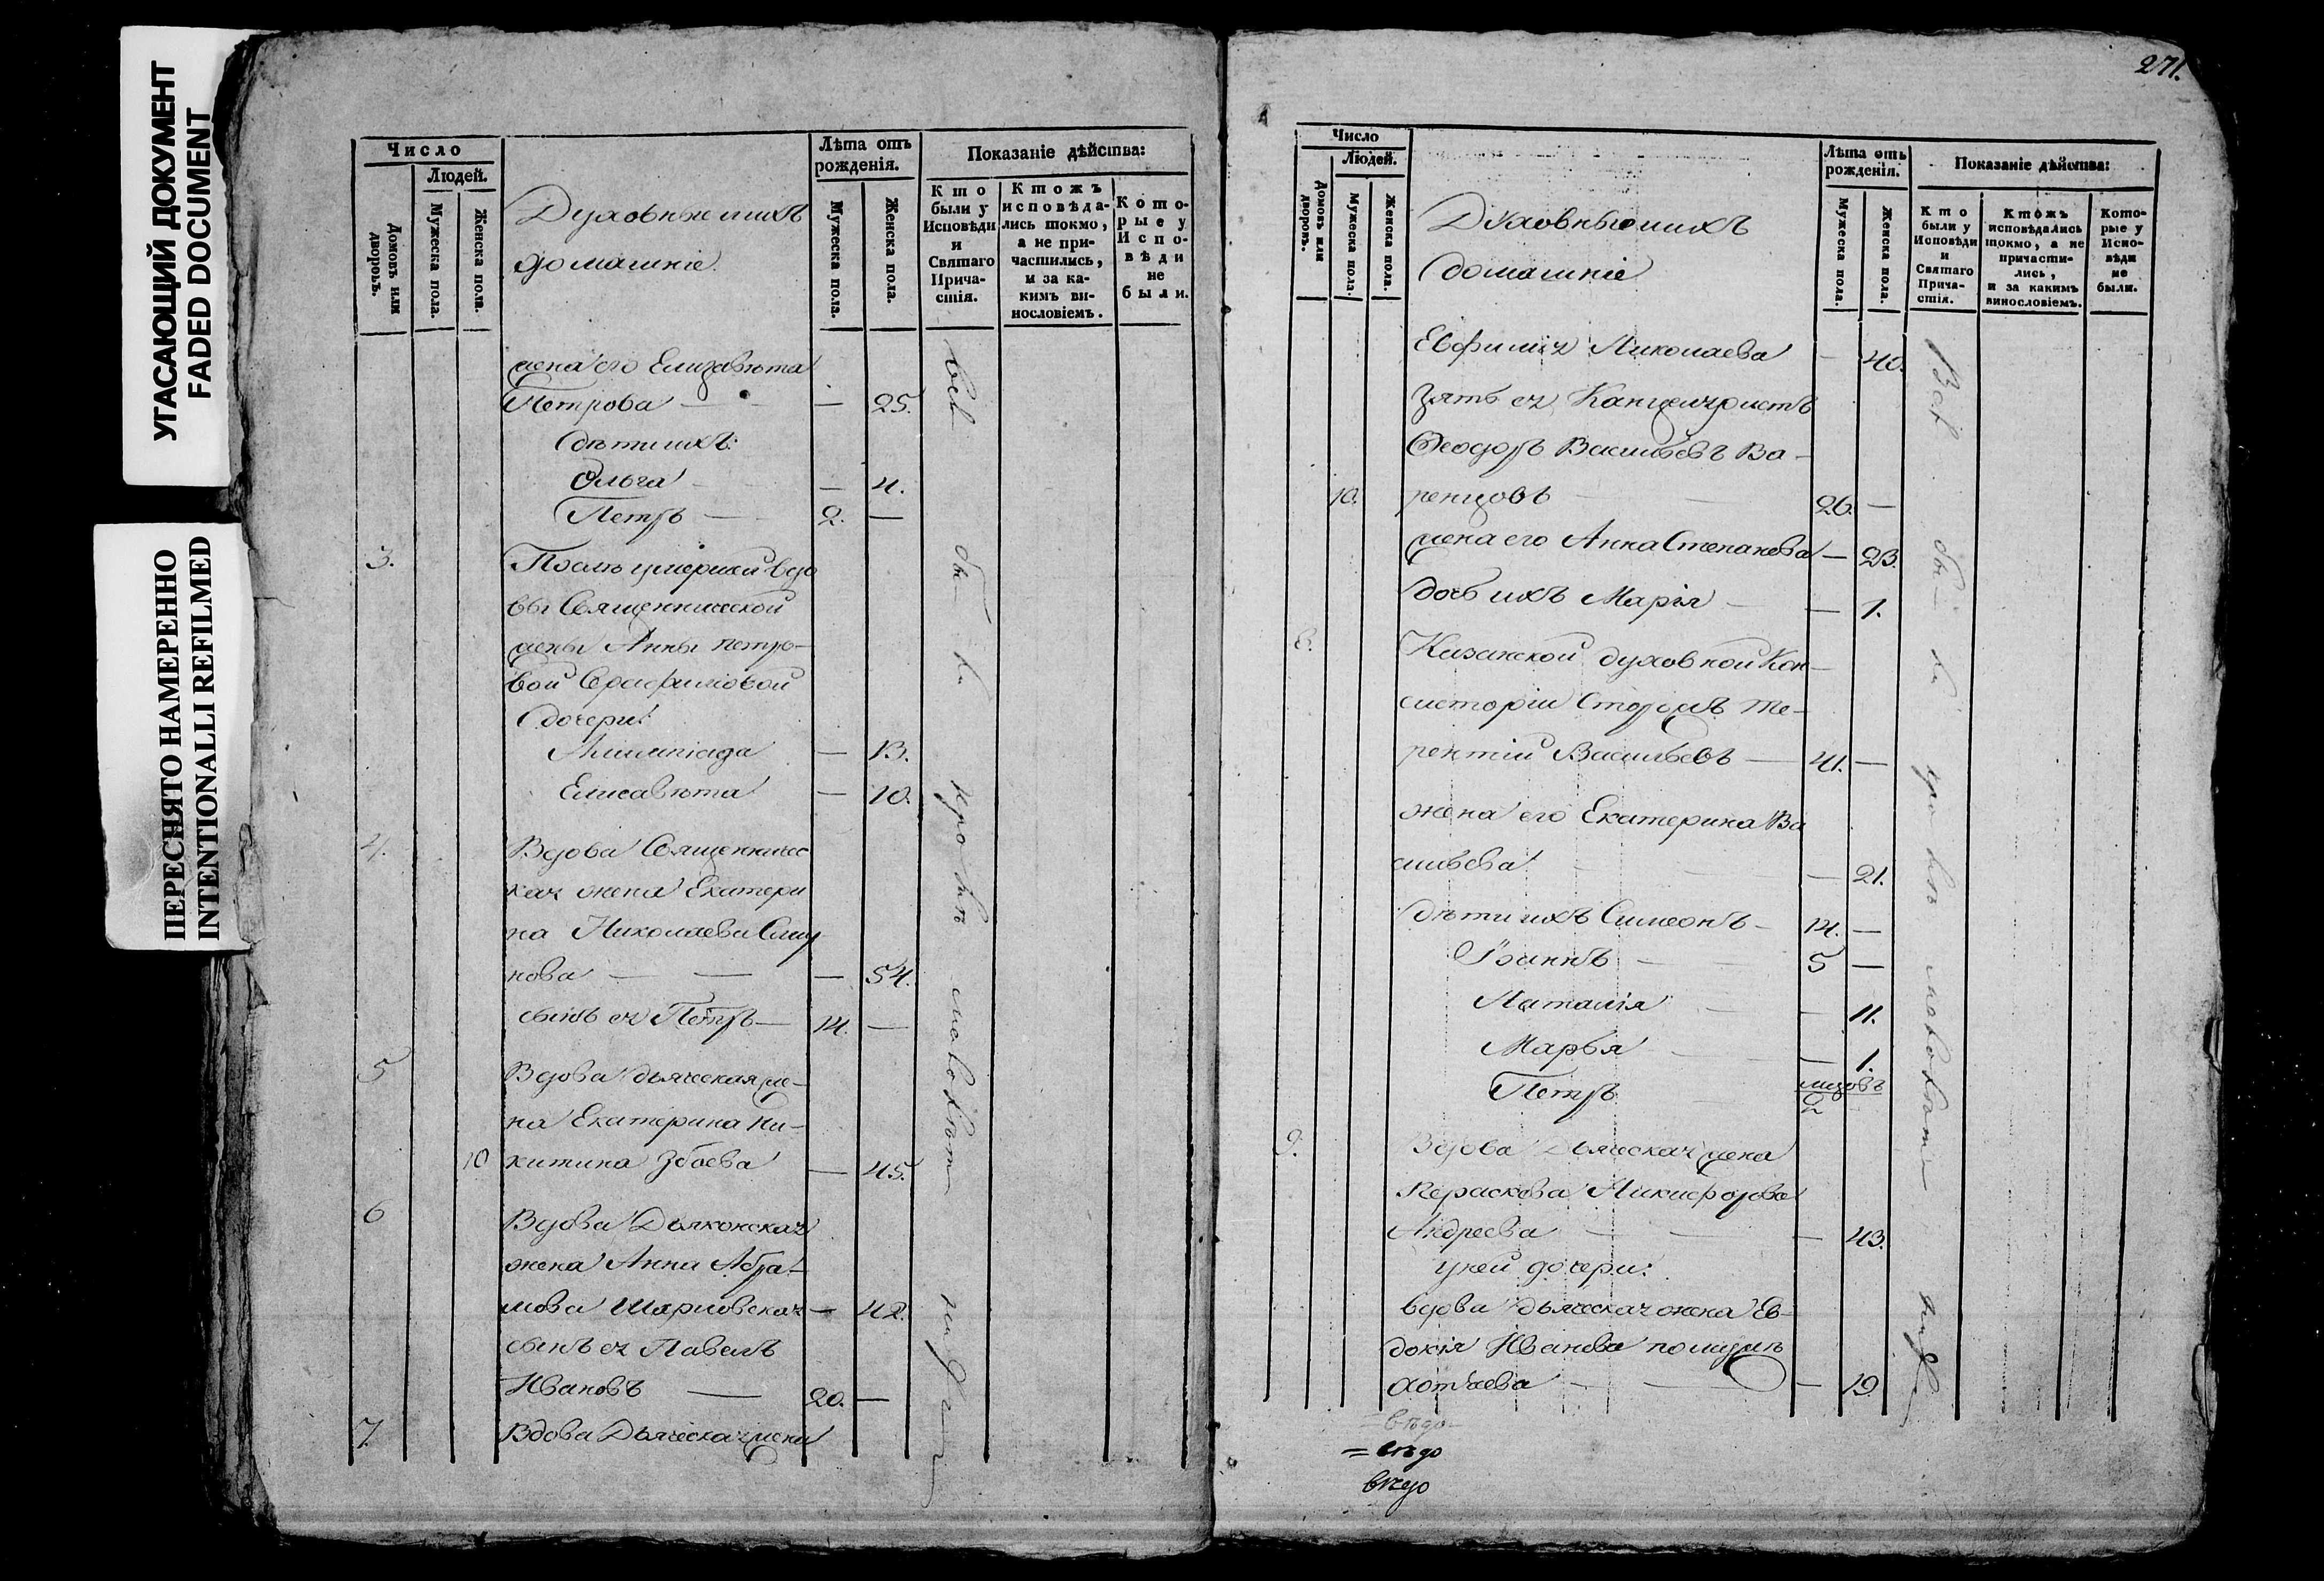 УГАСАЮЩИЙ ДОКУМЕНТ
FADED DOCUMENT
ПЕРЕСНЯТО НАМЕРЕННО
INTENTIONALLI REFILMED
Число
Людей.
Домовъ или дворовъ.
Мужеска пола.
Женска пола.
Духовные и ихъ
домашніе.
Лѣта отъ
рожденія.
Мужеска пола.
Женска пола.
Показаніе дѣйства:
Кто
были у
Исповѣди
и
Святаго
Прича-
стія.
Ктожъ
исповѣда-
лись токмо,
а не при-
частились,
и за ка-
кимъ ви-
нословіемъ.
Кото-
рые у
Испо-
вѣди
не
были.
жена его Елизавѣта
Петрова — — 25.
дѣти ихъ:
Ольга — 4.
Петръ — 2. —
3. Послѣ умершей вдо
вы Священнической
жены Анны Петро-
вой Серафимовой
дочери:
Алимпіада — 13.
Елисавѣта — 10.
4. Вдова Священничес
кая жена Екатери
на Николаева Смир
нова — — — 54.
сынъ ея Петръ — 14. —
5 Вдова дьяческая же-
на Екатерина Ни-
10 китина Збоева — 45.
6 Вдова Дьяконская
жена Анна Абра-
мова — 42.
сынъ ея Павелъ
Ивановъ — 20. —
7. Вдова Дьяческая жена
271.
Число
Людей.
Домовъ или дворовъ.
Мужеска пола.
Женска пола.
Духовные и ихъ
домашніе
Лѣта отъ
рожденія.
Мужеска пола.
Женска пола.
Показаніе дѣйства:
Кто
были у
Исповѣди
и
Святаго
Прича-
стія.
Ктожъ
исповѣдались
токмо, а не
причасти-
лись,
и за какимъ
винословіемъ.
Кото-
рые у
Испо-
вѣди
не
были.
Евфимія Николаева — 40.
зять ея Канцеляристъ
Ѳеодоръ Васильевъ Ва-
10. ренцовъ 26. —
жена его Анна Степанова — 23.
дочь ихъ Марія — — 1.
8. Казанской духовной Кон-
систоріи Сторожъ Те-
рентій Васильевъ — 41. —
жена его Екатерина Ва
сильева — 21.
дѣти ихъ Симеонъ — 14. —
Іоаннъ — 5 —
Наталія — 11.
Марья — 1.
Петръ
2
9. Вдова Дьяческая жена
Параскева Никифорова
Андреева — 43.
у ней дочери:
вдова дьяческая жена Ев-
докія Иванова по мужѣ
— 19.
= вѣдо
= вѣдо
вѣдо